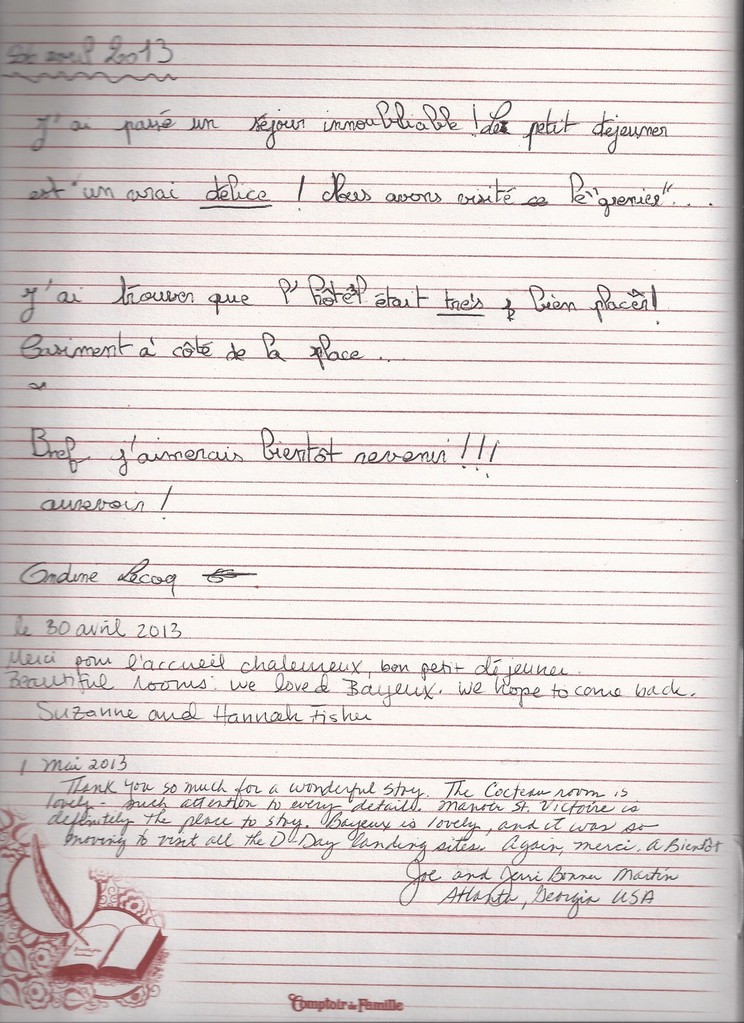 avril 2013
J'ai passé un séjour innoubliable ! Le petit dejeuner
est un vrai délice ! Nous avons visité le "grenier"...
J'ai trouver que l'hôtel était très bien placer !
Casiment à côté de la place ...
Bref j'aimerais bientôt revenir !!!
aurevoir !
Ondine Lecoq
le 30 avril 2013
Merci pour l'accueil chaleureux, bon petit déjeuner.
Beautiful rooms. We loved Bayeux. We hope to come back.
Suzanne and Hannah Fisher
1 Mai 2013
Thank you so much for a wonderful stay. The Cocteau room is
lovely - such attention to every detail. Manoir St. Victoire is
definitely the place to stay. Bayeux is lovely, and it was so
moving to visit all the D-Day landing sites. Again, merci. A Bientôt
Joe and Jerri Bonner Martin
Atlanta, Georgia USA
Comptoir de Famille